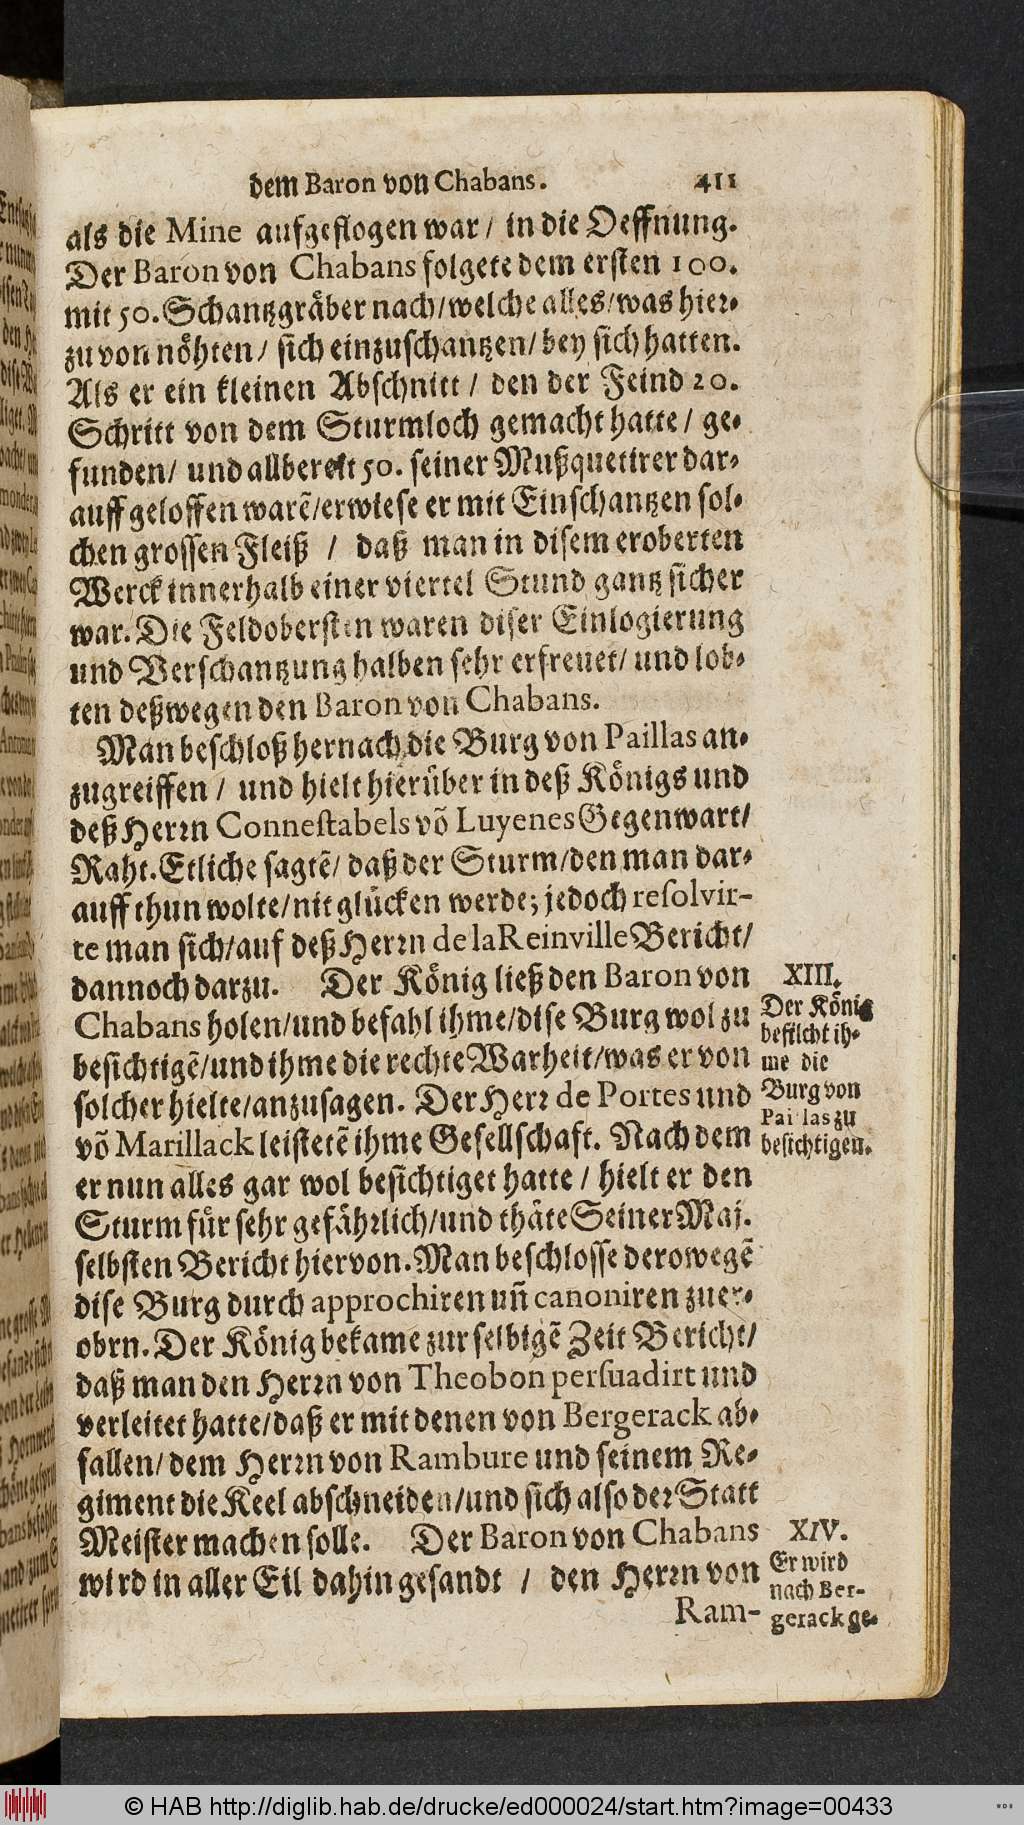 dem Baron von Chabans. 411
als die Mine aufgeflogen war / in die Oeffnung.
Der Baron von Chabans folgete dem ersten 100.
mit 50. Schantzgräber nach/welche alles/was hier-
zu von nöhten/ sich einzuschantzen/bey sich hatten.
Als er ein kleinen Abschnitt / den der Feind 20.
Schritt von dem Sturmloch gemacht hatte/ ge-
funden/ und allbereit 50. seiner Mußquetirer dar-
auff geloffen warẽ/erwiese er mit Einschantzen sol-
chen grossen Fleiß / daß man in disem eroberten
Werck innerhalb einer viertel Stund gantz sicher
war. Die Feldobersten waren diser Einlogierung
und Verschantzung halben sehr erfreuet/ und lob-
ten deßwegen den Baron von Chabans.
Man beschloß hernach die Burg von Paillas an-
zugreiffen / und hielt hierüber in deß Königs und
deß Herrn Connestabels võ Luyenes Gegenwart/
Raht. Etliche sagtẽ/ daß der Sturm/den man dar-
auff thun wolte/nit glücken werde; jedoch resolvir-
te man sich/auf deß Herrn de la Reinville Bericht/
dannoch darzu. Der König ließ den Baron von
Chabans holen/und befahl ihme/dise Burg wol zu
besichtigẽ/und ihme die rechte Warheit/was er von
solcher hielte/anzusagen. Der Herr de Portes und
võ Marillack leistetẽ ihme Gesellschaft. Nach dem
er nun alles gar wol besichtiget hatte / hielt er den
Sturm für sehr gefährlich/und thäte Seiner Maj.
selbsten Bericht hiervon. Man beschlosse derowegẽ
dise Burg durch approchiren uñ canoniren zu er-
obrn. Der König bekame zur selbigẽ Zeit Bericht/
daß man den Herrn von Theobon persuadirt und
verleitet hatte/daß er mit denen von Bergerack ab-
fallen/dem Herrn von Rambure und seinem Re-
giment die Keel abschneiden/und sich also der Statt
Meister machen solle. Der Baron von Chabans
wird in aller Eil dahin gesandt / den Herrn von
Ram-
XIII.
Der König
befilcht ih-
me die
Burg von
Paillas zu
besichtigen.
XIV.
Er wird
nach Ber-
gerack ge-
© HAB http://diglib.hab.de/drucke/ed000024/start.htm?image=00433